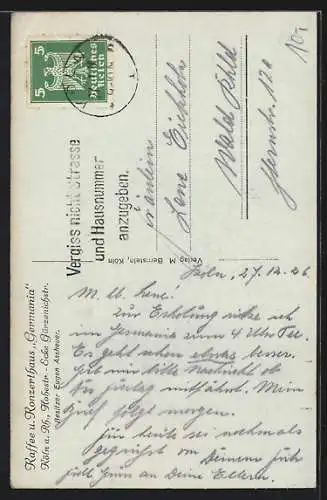 10,-
5 5
Deutsches
Reich
Vergiss nicht Strasse
und Hausnummer
anzugeben.
Fräulein
Lene Eichholz
Sternstr. 120
Verlag M. Bernstein, Köln
Kaffee u. Konzerthaus „Germania"
Köln a. Rh., Hohestr.- Ecke Gürzenichstr.
Besitzer Eugen
Köln, 27.12.26
M. lb. Lene!
Zur Erholung sitze ich
im Germania zum 4 Uhr Tee.
Es geht schon etwas besser.
Gib mir bitte Nachricht ob
Du Freitag mitfährst. Mein
Brief folgt morgen.
Für heute sei nochmals
gegrüsst von Deinem
Gruss an Deine Eltern.